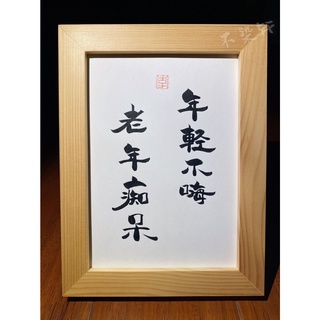 年輕不嗨
老年痴呆